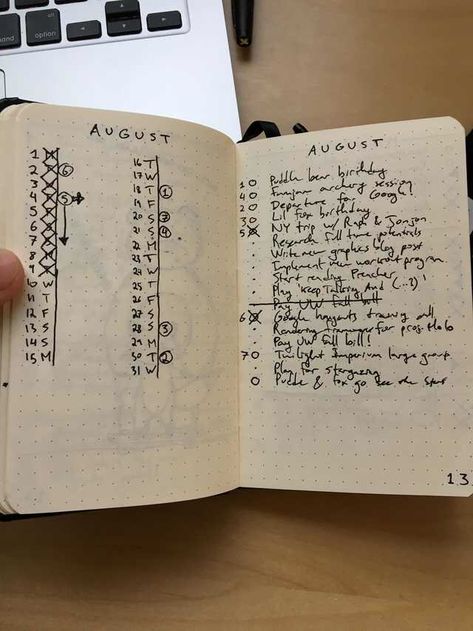 AUGUST
1
2
3 ⑥
4
5 ⑤
6
7
8
9
10 W
11 T
12 F
13 S
14 S
15 M
16 T
17 W
18 T ①
19 F
20 S ⑦
21 S ④
22 M
23 T
24 W
25 T
26 F
27 S
28 S ③
29 M
30 T ②
31 W
AUGUST
1 O Puddle bear birthday
4 O archery session
2 O Departure for Google!
3 O Lil fox birthday
5 NY trip w/ Raph & Jonjon
· Research full time potentials
· Write new graphics blog post
· Implement new workout program
· Start reading Preacher
· Play Keep Talking And (...)!
· Pay UW fall bill
6 Google hangouts training call
· Rendering for proj.
· Pay UW fall bill!
7 O Twilight Imperium large group
· Plan for stargazing
O Puddle & fox go see the stars
13
command
option
control